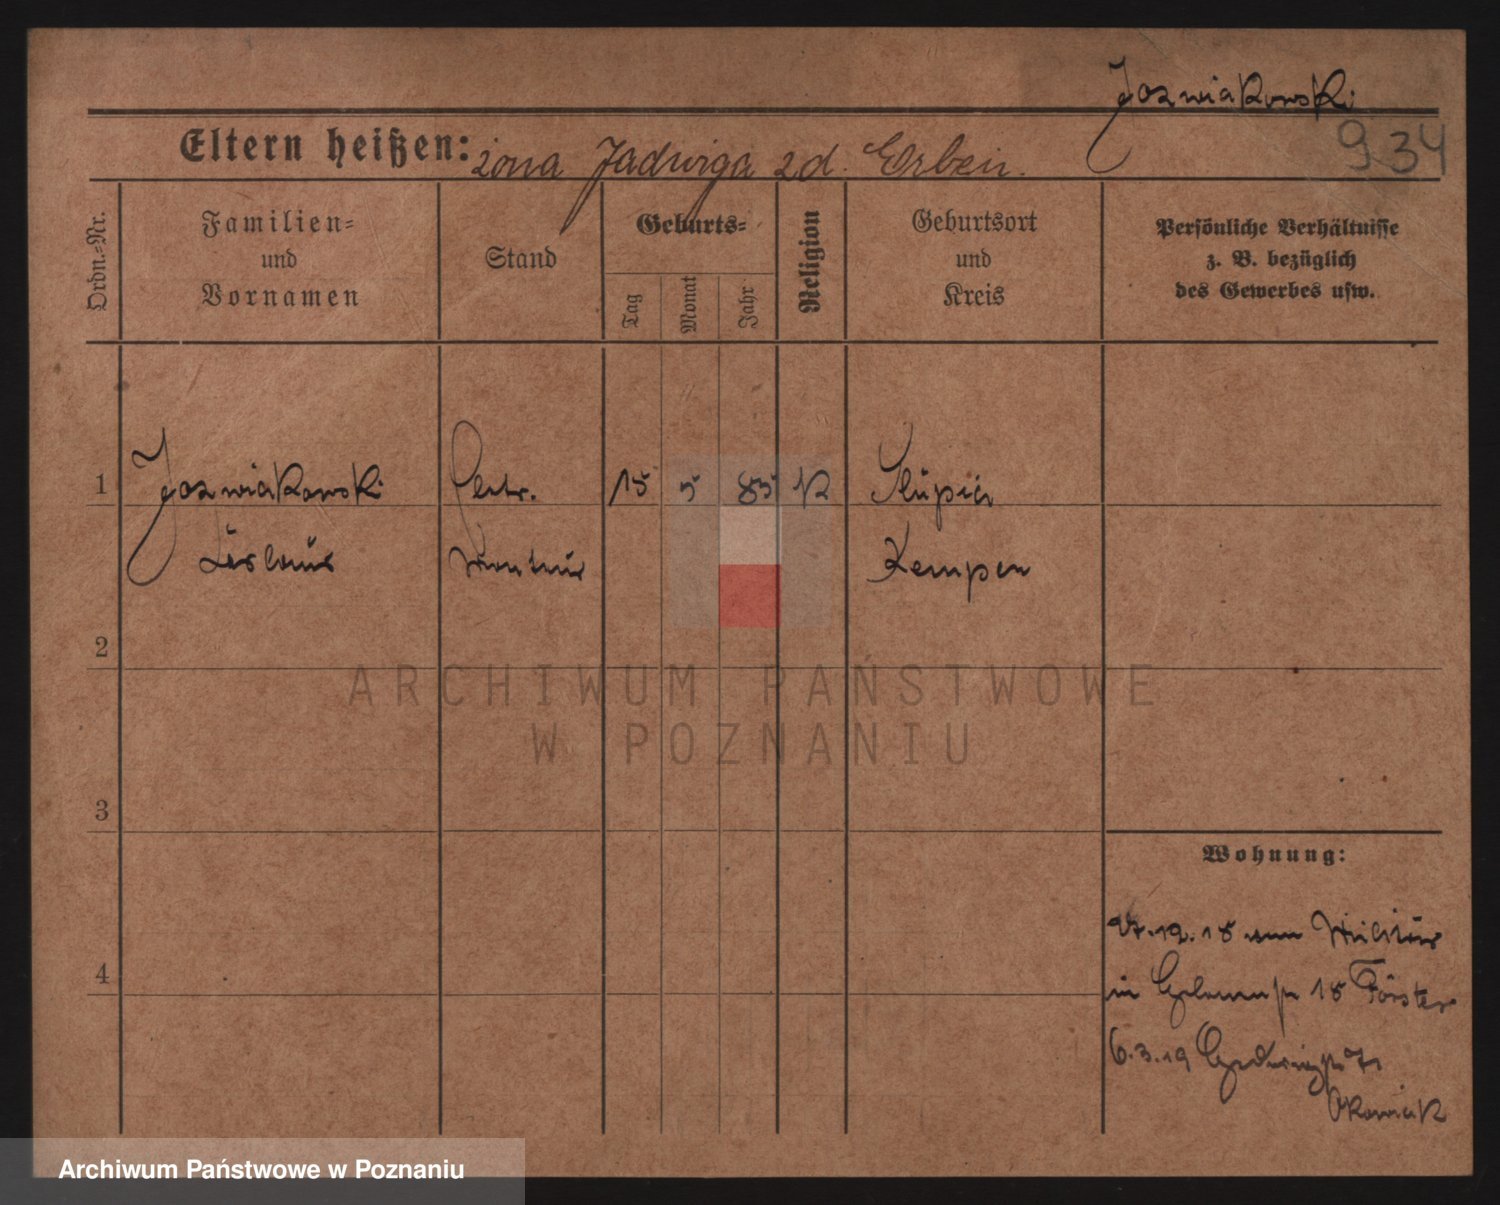 Jozwiakowski
934
Eltern heißen: żona Jadwiga zd. Erben.
Ordn.-Nr.
Familien- und Vornamen
Stand
Geburts-
Tag
Monat
Jahr
Religion
Geburtsort und Kreis
Persönliche Verhältnisse
z. B. bezüglich
des Gewerbes usw.
1 Jozwiakowski 15 5 85 K Slupia
Kempen
2
3
4
Wohnung:
27.12.18 vom Militär
in 18 Förster
6.3.19
ARCHIWUM PAŃSTWOWE
W POZNANIU
Archiwum Państwowe w Poznaniu